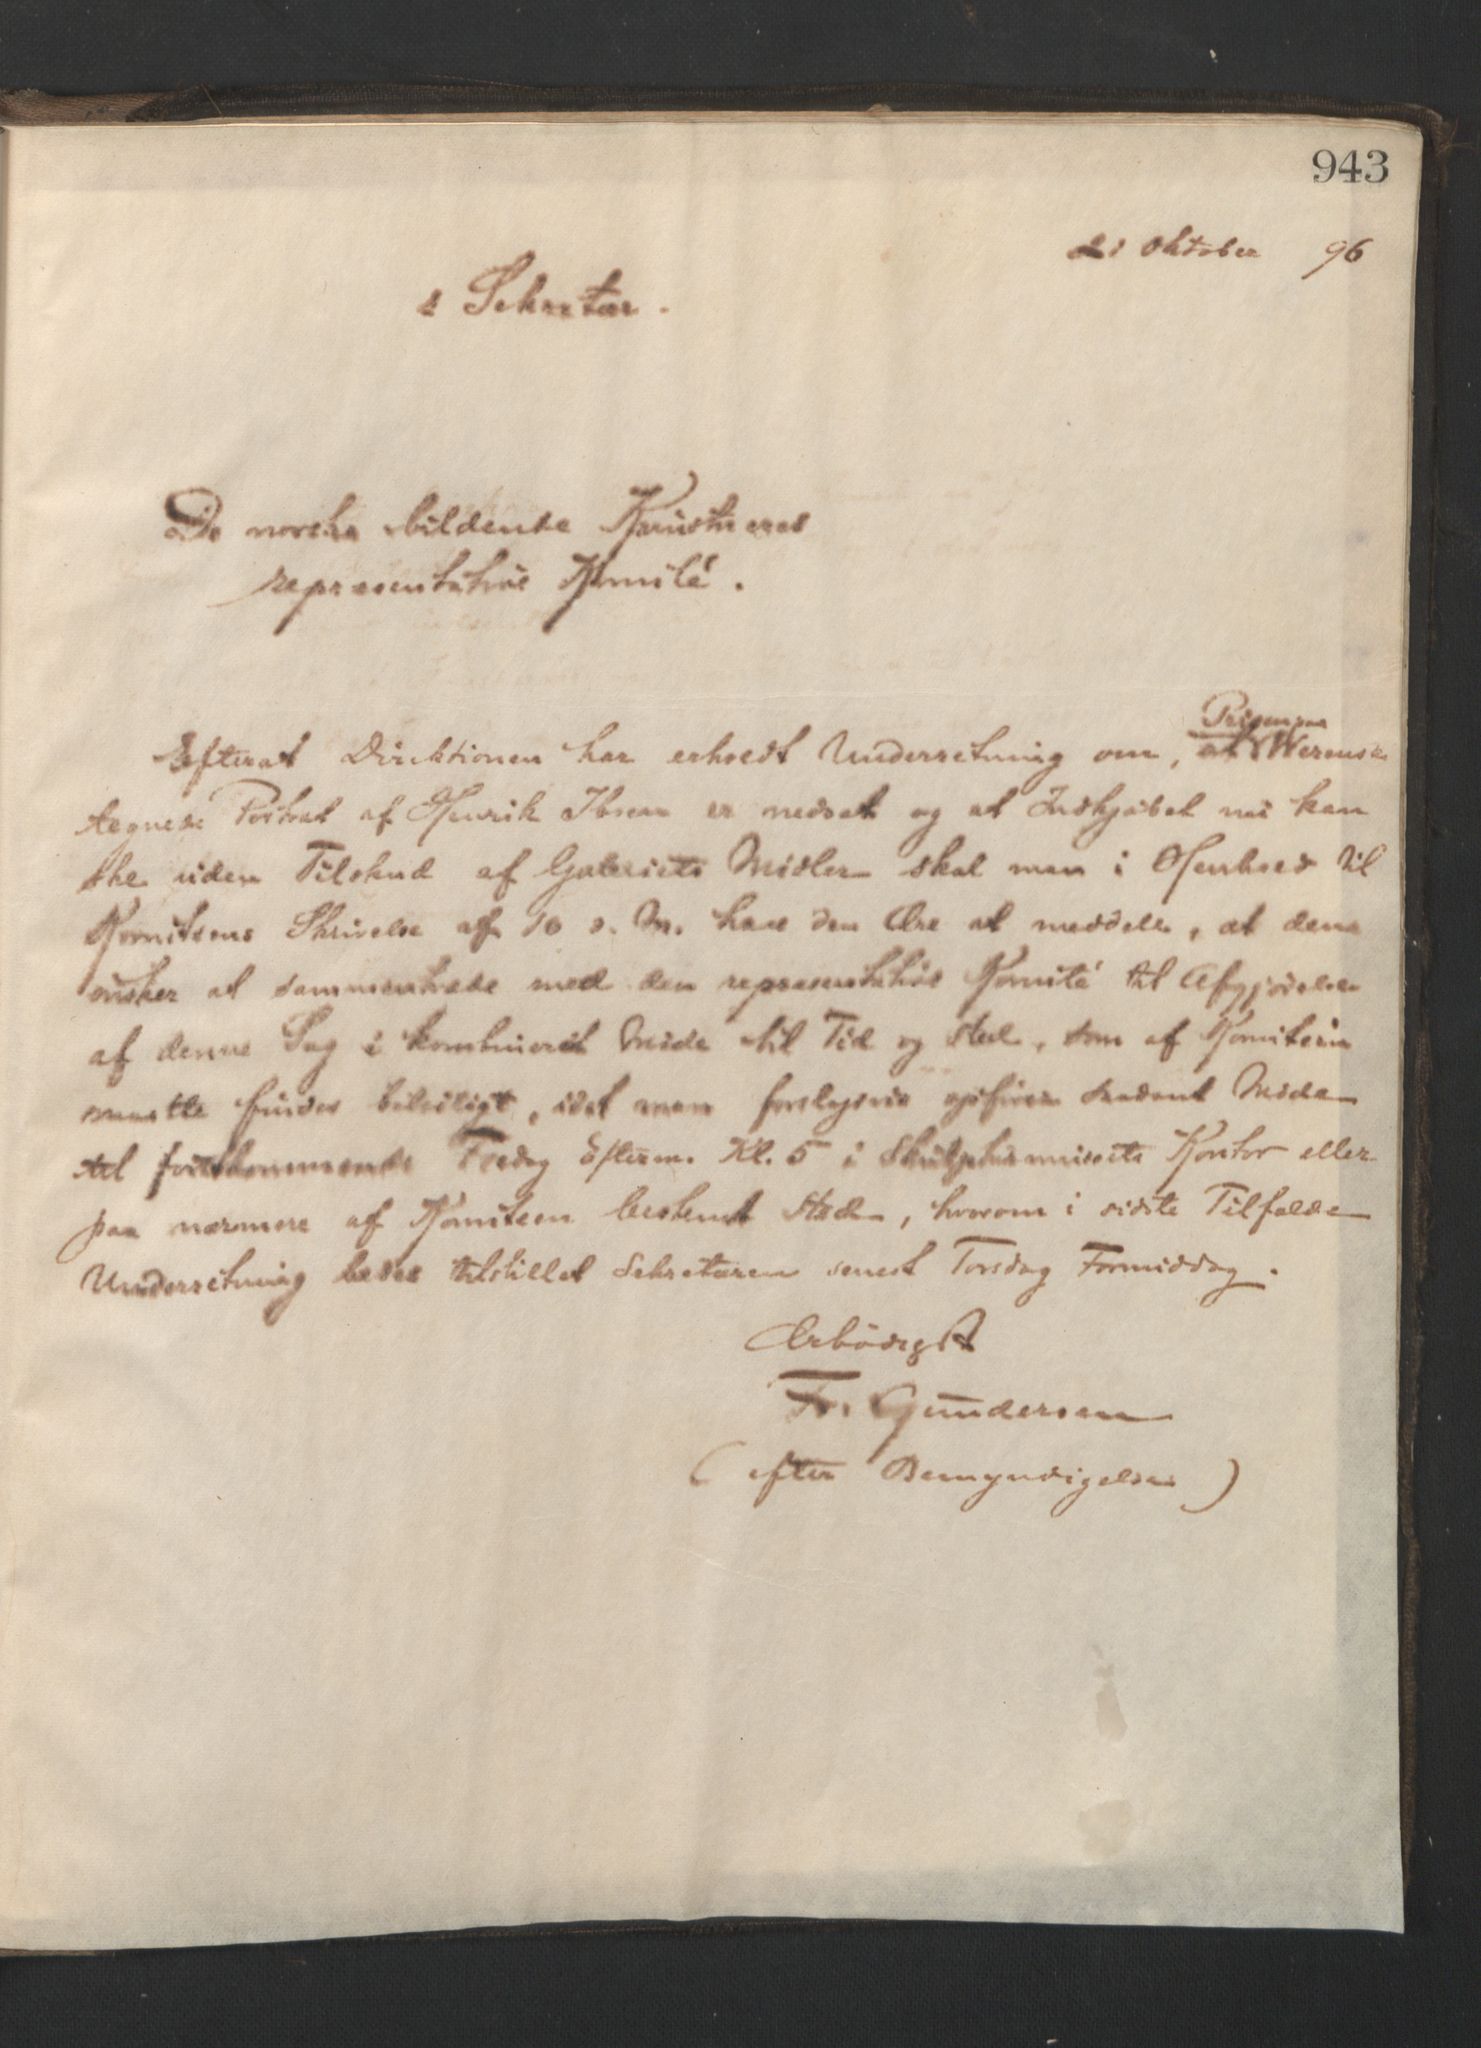 943
21 Oktober 96
s Sekretær.
De norske bildende Kunstneres
repræsentative Komité.
Prisen paa
Efterat Direktionen har erholdt Underretning om, at Werensk.
tegnede Portræt af Henrik Ibsen er nedsat og at Indkjøbet nu kan
ske uden Tilskud af Galeriets Midler skal man i Henhold til
Komitéens Skrivelse af 10 d. M. have den Ære at meddele, at denne
ønsker at sammentræde med den repræsentative Komité til Afgjørelse
af denne Sag i kombineret Møde til Tid og Sted, som af Komitéen
maatte findes beleiligt, idet man foreslagsvis opfører saadant Møde
til førstkommende Fredag Efterm. Kl. 5 i Skulpturmuseets Kontor eller
paa nærmere af Komitéen bestemt Sted, hvorom i sidste Tilfælde
Underretning bedes tilstillet Sekretæren senest Torsdag Formiddag.
Ærbødigst
Fr. Gundersen
(efter Bemyndigelse)